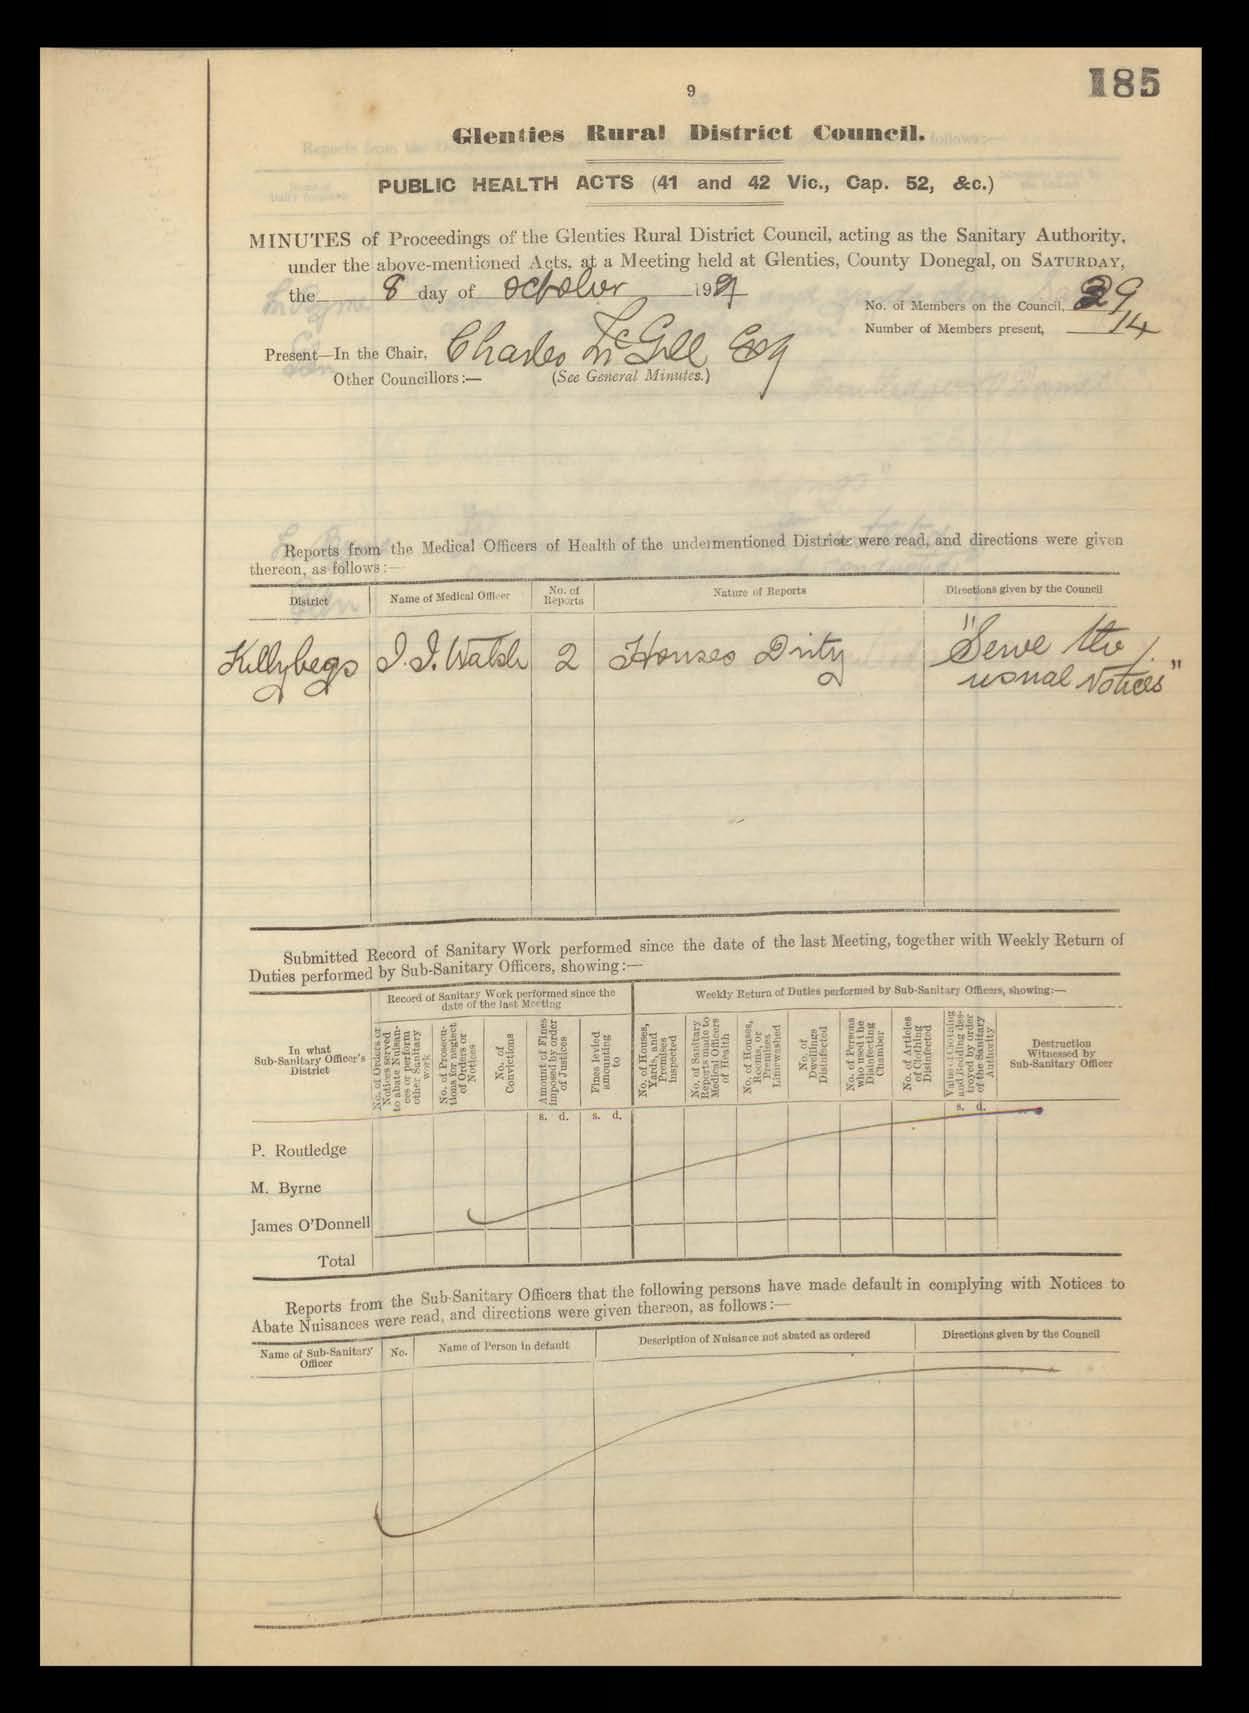 185
9
Glenties Rural District Council.
PUBLIC HEALTH ACTS (41 and 42 Vic., Cap. 52, &c.)
MINUTES of Proceedings of the Glenties Rural District Council, acting as the Sanitary Authority,
under the above-mentioned Acts, at a Meeting held at Glenties, County Donegal, on SATURDAY,
the 8 day of October 19
No. of Members on the Council, 39
Number of Members present, 14
Present—In the Chair, Charles McGill Esq
Other Councillors:— (See General Minutes.)
Reports from the Medical Officers of Health of the undermentioned Districts were read, and directions were given
thereon, as follows:—
District Name of Medical Officer No. of Reports Nature of Reports Directions given by the Council
Killybegs J. J. Walsh 2 Houses Dirty "Serve the
usual Notices"
Submitted Record of Sanitary Work performed since the date of the last Meeting, together with Weekly Return of
Duties performed by Sub-Sanitary Officers, showing:—
Record of Sanitary Work performed since the
date of the last Meeting
Weekly Return of Duties performed by Sub-Sanitary Officers, showing:—
In what
Sub-Sanitary Officer's
District
No. of Orders or
Notices served
to abate Nuisan-
ces or perform
other Sanitary
work
No. of Prosecu-
tions for neglect
of Orders or
Notices
No. of
Convictions
Amount of Fines
imposed by order
of Justices
Fines levied
amounting
to
No. of Houses,
Yards, and
Premises
Inspected
No. of Sanitary
Reports made to
Medical Officers
of Health
No. of Houses,
Rooms, or
Premises
Limewashed
No. of
Dwellings
Disinfected
No. of Persons
who used the
Disinfecting
Chamber
No. of Articles
of Clothing
Disinfected
Value of Clothing
and Bedding des-
troyed by order
of the Sanitary
Authority
Destruction
Witnessed by
Sub-Sanitary Officer
s. d. s. d. s. d.
P. Routledge
M. Byrne
James O'Donnell
Total
Reports from the Sub-Sanitary Officers that the following persons have made default in complying with Notices to
Abate Nuisances were read, and directions were given thereon, as follows:—
Name of Sub-Sanitary
Officer
No. Name of Person in default Description of Nuisance not abated as ordered Directions given by the Council